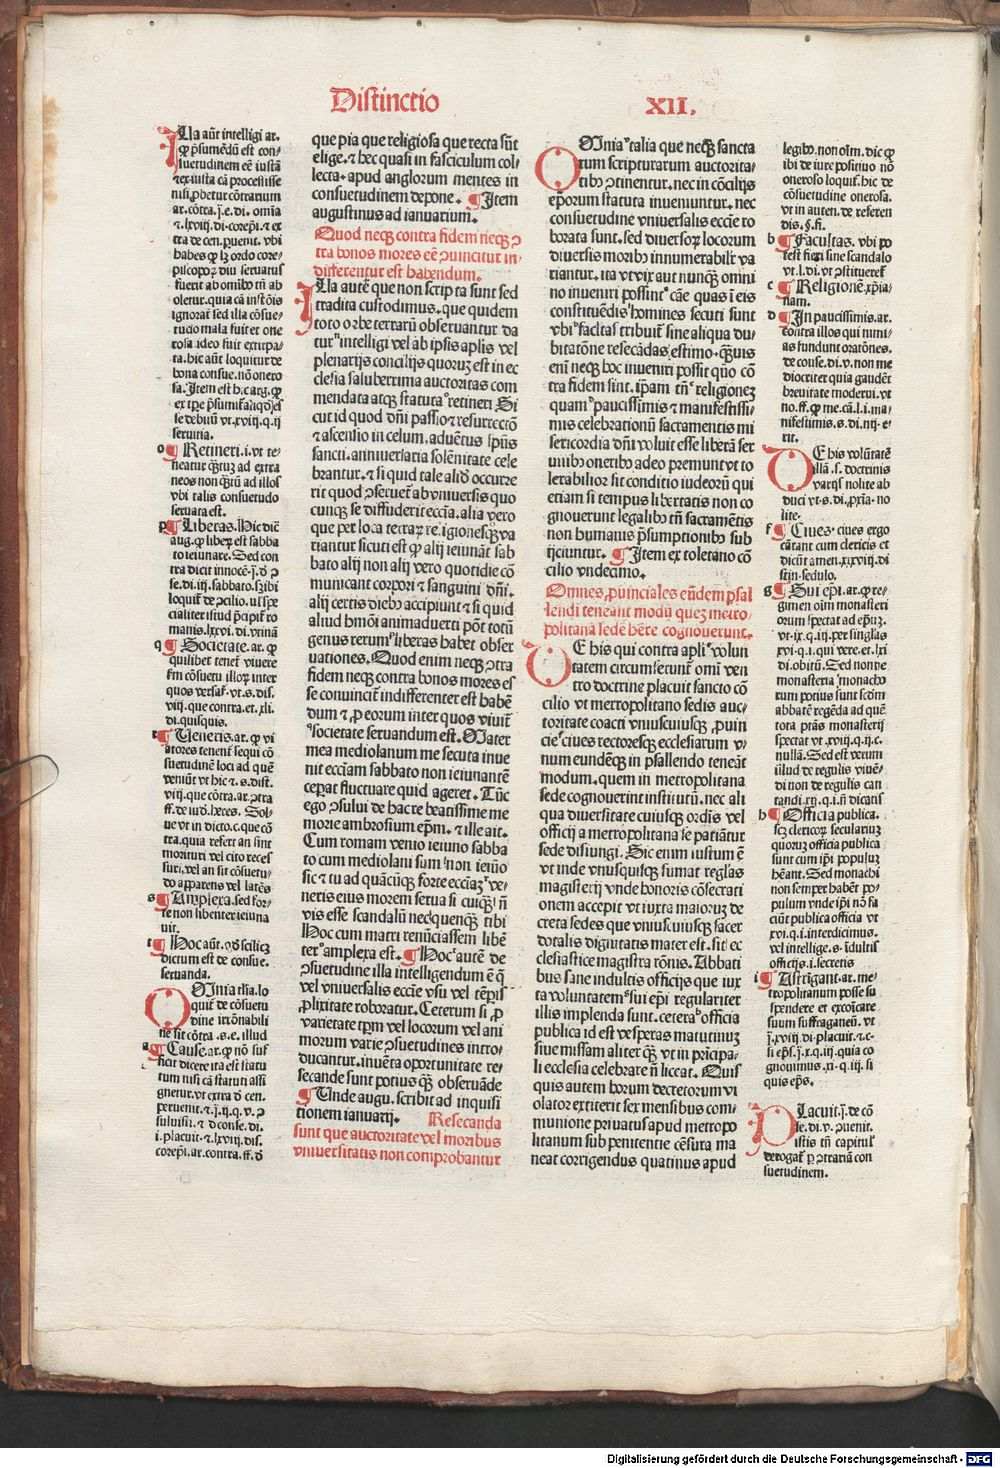 Distinctio XII.
Illa aūt intelligi ar.
ꝙ p̄sumēdū est con-
suetudinem eē iustā
⁊ ex iusta cā processisse
nisi ꝓbetur cōtrarium
ar. cōtra. j. e. di. omīa
habes ꝙ lꝫ ordo core-
piscopoꝝ diu seruatus
fuerit ab omibꝰ tn̄ ab
oletur. quia cā inst̄ōis
ignorat̄ sed illa cōsue-
tudo mala fuit et one
rosa. ideo fuit extirpa-
ta. hic aūt loquitur de
bona consue. nō onero
sa. Item est h. c arg. ꝙ
seruitia.
o ¶ Retineri. i. vt te-
neatur qͣtuꝫ ad extra
neos non qͣtū ad illos
vbi talis consuetudo
seruata est.
p ¶ Liberas. Hic dic̄
aug. ꝙ liberꝫ est sabba
to ieiunare. Sed con
tra dicit innocē. j. ꝺ ꝯ
se. di. iij. sabbato. sꝫ ibi
loquit̄ de ꝯcilio. ul̓ spe
cialiter istud p̄cipit̄ ro
manis. lxxvi. di. vtinā
q ¶ Societate. ar. ꝙ
quilibet tenet̄ viuere
fm̄ cōsuetu illoꝝ inter
quos versat̄. vt. s. dis.
viij. que contra. et. xli.
di. quisquis.
r ¶ Veneris. ar. ꝙ vi
atores tenent̄ sequi cō
suetudinē loci ad quē
veniūt vt hic ⁊. s. dist.
viij. que cōtra. ar. ꝯtra
ff. de iud̓. heres. Sol-
ue vt in dicto. c. que cō
tra. quia refert an sint
morituri vel cito reces
suri. vel an sit cōsuetu-
do apparens vel latēs
s ¶ Amplexa. sed for-
te non libenter ieiuna
uit.
t ¶ Hoc aūt. qd̓ scilicꝫ
dictum est de consue.
seruanda.
OMnia tl̓ia. lo
quit̄ de cōsuetu
dine irrōnabili
ne sit cōtra. s. e. illud
a ¶ Cause. ar. ꝙ nō suf
ficit dicere ita est statu
tum nisi cā statuti assi
gnetur. vt extra ꝺ cen.
peruenit. ⁊. j. ij. q. v. ꝯ
suluisti. ⁊ ꝺ conse. di.
i. placuit. ⁊. lxviij. dis.
corepi. ar. contra. ff. ꝺ
que pia que religiosa que recta sūt
elige. ⁊ hec quasi in fasciculum col-
lecta. apud anglorum mentes in
consuetudinem depone. ¶ Item
augustinus ad ianuarium.
Quod neqꝫ contra fidem neqꝫ ꝯ
tra bonos mores eē ꝯuincitur in-
differentur est habendum.
ILla autē que non scripta sunt sed
tradita custodimus. que quidem
toto orbe terrarū obseruantur da
tur intelligi vel ab ipsis aplis vel
plenarijs concilijs quorum est in ec
clesia saluberrima auctoritas com
mendata atqꝫ statuta retineri Si
cut id quod dn̄i passio ⁊ resurrectō
⁊ ascensio in celum. aduētus sp̄us
sancti. anniuersaria solēnitate cele
brantur. ⁊ si quid tale aliꝺ occurre
rit quod ꝯseruet̄ ab vniuersis quo
cunqꝫ se diffuderit ecc̄ia. alia vero
que per loca terraꝝ re. igionesqꝫ va
riantur sicuti est ꝙ alij ieiunāt sab
bato alij non alij vero quotidie cō
municant corpori ⁊ sanguini dn̄i.
alij certis diebꝰ accipiunt ⁊ si quid
aliud hmōi animaduerti pōt totū
genus rerum liberas habet obser
uationes. Quod enim neqꝫ ꝯtra
fidem neqꝫ contra bonos mores es
se conuincit̄ indifferenter est habē
dum ⁊ ꝓ eorum inter quos viuit̄
societate seruandum est. Mater
mea mediolanum me secuta inue
nit ecc̄iam sabbato non ieiunantē
ceperat fluctuare quid ageret. Tūc
ego ꝯsului de hac re beatissime me
morie ambrosium ep̄m. ⁊ ille ait.
Cum romam venio ieiuno sabba
to cum mediolani sum non ieiūo
sic ⁊ tu ad quācūqꝫ forte ecc̄iaꝫ ve-
neris eius morem serua si cuiqꝫ nō
vis esse scandalū nec quenqꝫ tibi
Hoc cum matri renūciassem libē
ter amplexa est. ¶ Hoc autē de
ꝯsuetudine illa intelligendum ē q̄
vel vniuersalis eccīe vsu vel tēpis
ꝓlixitate roboratur. Ceterum si ꝓ
varietate tp̄m vel locorum vel ani
morum varie ꝯsuetudines intro-
ducantur. inuēta oportunitate re-
secande sunt potius qͣꝫ obseruāde
¶ Unde augu. scribit ad inquisi
tionem ianuarij. Resecanda
sunt que auctoritate vel moribus
vniuersitatis non comprobantur
OMnia talia que neqꝫ sancta
rum scripturarum auctorita-
tibꝰ ꝯtinentur. nec in cōcilijs
ep̄orum statuta inueniuntur. nec
consuetudine vniuersalis eccīe ro
borata sunt. sed diuersoꝝ locorum
diuersis moribꝰ innumerabilr̄ va
riantur. ita vt vix aut nunqͣꝫ omni
no inueniri possint cāe quas ī eis
constituēdis homines secuti sunt
vbi facultas tribuit̄ sine aliqua du-
bitatōne resecādas estimo. qͣꝫuis
eni neqꝫ hoc inueniri possit quō cō
tra fidem sint. ip̄am tn̄ religionez
quam paucissimis ⁊ manifestissi-
mis celebrationū sacramentis mi
sericordia dn̄i voluit esse liberā ser
uilibꝰ oneribꝰ adeo premunt vt to
lerabilior sit conditio iudeorū qui
etiam si tempus libertatis non co
gnouerunt legalibꝰ tn̄ sacramētis
non humanis p̄sumptionibꝰ sub
ijciuntur. ¶ Item ex toletano cō
cilio vndecimo.
Omnes ꝓuinciales eūdem psal
lendi teneant modū quez metro-
politanā sedē hēre cognouerunt.
DE his qui contra apl̓i volun
tatem circumferunt̄ omī ven
tro doctrine placuit sancto cō
cilio vt metropolitano sedis auc-
toritate coacti vniuscuiusqꝫ ꝓuin
cie ciues rectoresqꝫ ecclesiarum v-
num eundēqꝫ in psallendo teneāt
modum. quem in metropolitana
sede cognouerint institutū. nec ali
qua diuersitate cuiusqꝫ ordis vel
officij a metropolitana se patiātur
sede disiungi. Sic enim iustum ē
vt inde vnusquisqꝫ sumat regl̓as
magisterij vnde honoris cōsecrati
onem accepit vt iuxta maioruꝫ de
creta sedes que vniuscuiusqꝫ sacer
dotalis dignitatis mater est. sit ec
clesiastice magistra rōnis. Abbati
bus sane indultis officijs que iux
ta voluntatem sui ep̄i regulariter
illis implenda sunt. cetera officia
publica id est vesperas matutinuꝫ
siue missam aliter qͣꝫ vt in p̄ncipa-
li ecclesia celebrare nō liceat. Quis
quis autem horum decretorum vi
olator extiterit sex mensibus com-
munione priuatus apud metropo
litanum sub penitentie cēsura ma
neat corrigendus quatinus apud
legibꝰ. non oīm. dic ꝙ
ibi de iure positiuo nō
oneroso loquit̄. hic de
cōsuetudine onerosa.
vt in auten. de referen
dis. §. fi.
b ¶ Facultas. vbi po
test fieri sine scandalo
vt. l. di. vt ꝯstitueret̄
c ¶ Religionē. xp̄ia-
nam.
d ¶ In paucissimis. ar.
contra illos qui nimi-
as fundunt oratōnes.
de conse. di. v. non me
diocriter quia gaudēt
breuitate moderni. vt
no. ff. ꝙ me. cā. l. i. ma-
nifestimis. s. di. iiij. e-
rit.
DE his volūtatē
illā. s. doctrinis
varijs nolite ab
duci vt. s. di. ꝓxīa. no
lite.
f ¶ Ciues. ciues ergo
cātant cum clericis et
dicūt amen. xxxviij. di
sedulo.
g ¶ Sui ep̄i. ar. ꝙ re-
gimen oīm monasteri
orum spectat ad ep̄uꝫ.
vt. ix. q. iij. per singl̓as
xvi. q. i. qui vere. et. lxi
di. obitū. Sed nonne
monasteria monacho
rum potius sunt scd̄m
abbatē regēda ad quē
tota ptās monasterij
spectat vt. xviij. q. ij. c.
nullā. Sed est verum
illud de regulis viuē-
di non de regulis can
tandi. xij. q. i. n̄ dicatis
h ¶ Officia publica.
scꝫ clericoꝝ seculariuꝫ
quoruꝫ officia publica
sunt cum ip̄i populuꝫ
hēant. Sed monachi
non semper habēt po-
pulum vnde ip̄i nō fa
ciūt publica officia vt
xvi. q. i. interdicimus.
vel intellige. s. idultis
officijs. i. secretis
i ¶ Astringant. ar. me-
tropolitanum posse su
spendere et excōicare
suum suffraganeū. vt
j. xviij. di. placuit. ⁊. c-
si ep̄s. j. x. q. iij. quia co
gnouimus. xi. q. iij. si
quis ep̄s.
PLacuit. j. de cō
se. di. v. ꝯuenit.
istis tn̄ capitul̓
derogat̄ ꝑ ꝯtrariā con
suetudinem.
Digitalisierung gefördert durch die Deutsche Forschungsgemeinschaft - DFG